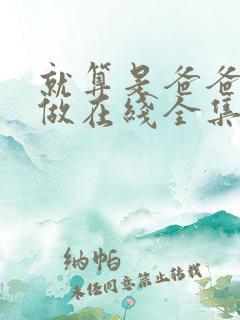 就算是爸爸
做在线全集
纳帕
未经同意禁止转载